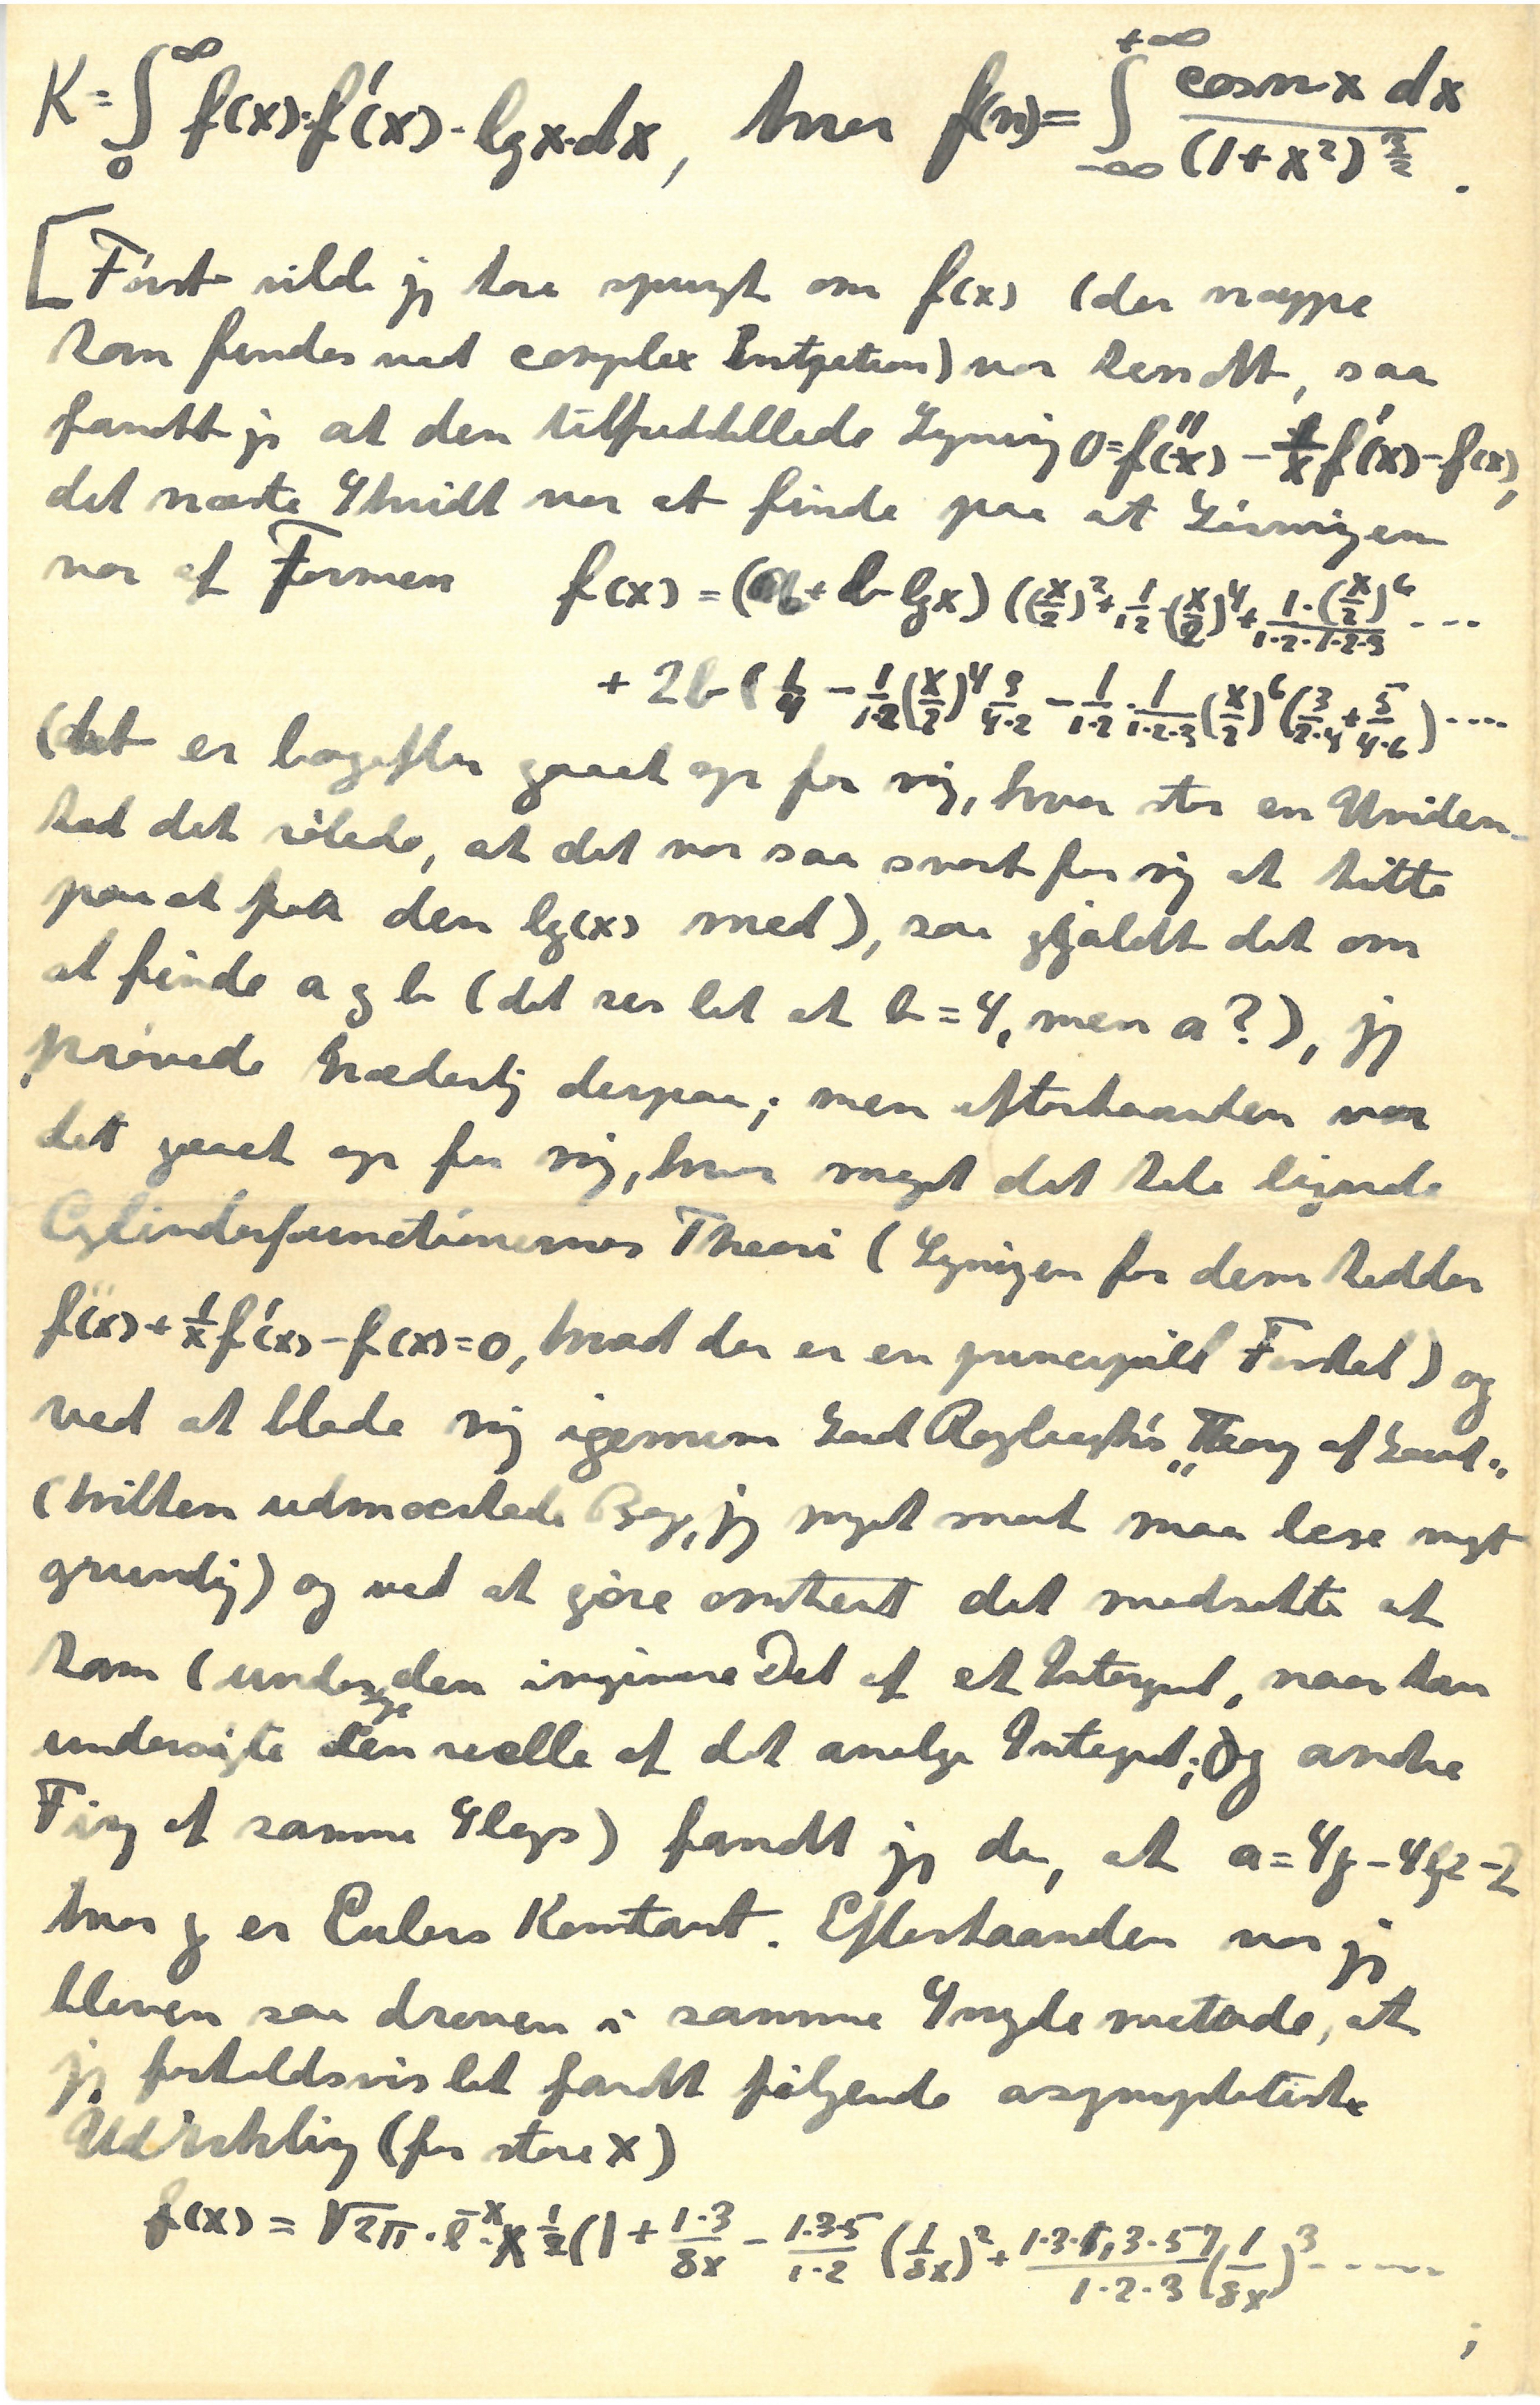 K = ∫₀^∞ f(x)·f'(x)·lgx·dx, hvor f(n) = ∫_{-∞}^{+∞} cosnx dx / (1+x²)^{3/2} .
[Først vilde jeg have spurgt om f(x) (der næppe
kan findes ved complex Integration) var kendt, saa
fandt jeg at den tilfredstillede Ligning 0=f''(x) - 1/x f'(x) - f(x),
det næste Skridt var at finde paa at Løsningen
var af Formen f(x) = (a + b lgx) ((x/2)² + 1/1·2 (x/2)⁴ + 1·(x/2)⁶/1·2·1·2·3 ...
+ 2b (1/4 - 1/1·2 (x/2)⁴ 3/4·2 - 1/1·2 · 1/1·2·3 (x/2)⁶ (3/2·4 + 5/4·6) ....
(det er bagefter gaaet op for mig, hvor stor en Uviden-
hed det røbede, at det var saa svært for mig at hitte
paa at faa den lg(x) med), saa gjaldt det om
at finde a og b (det ses let at b = 4, men a?), jeg
prøvede hæderlig derpaa; men efterhaanden var
det gaaet op for mig, hvor meget det hele lignede
Cylinderfunctionernes Theori (Ligningen for dem hedder
f''(x) + 1/x f'(x) - f(x) = 0, hvad der er en principiel Forskel) og
ved at blade mig igennem Lord Rayleigh's "Theory of Sound"
(hvilken udmærkede Bog, jeg meget snart maa læse meget
grundig) og ved at gøre omtrent det modsatte af
ham (undersøge den imaginære Del af et Integral, naar han
undersøgte den reelle af det analoge Integral; og andre
Ting af samme Slags) fandt jeg da, at a = 4γ - 4lg2 - 2
hvor γ er Eulers Konstant. Efterhaanden var jeg
bleven saa dreven i samme Snydemetode, at
jeg forholdsvis let fandt følgende asymptotiske
Udvikling (for store x)
f(x) = √2π · e^{-x} · x^{1/2} (1 + 1·3/8x - 1·3·5/1·2 (1/8x)² + 1·3·1,3·5·7/1·2·3 (1/8x)³ .....
;